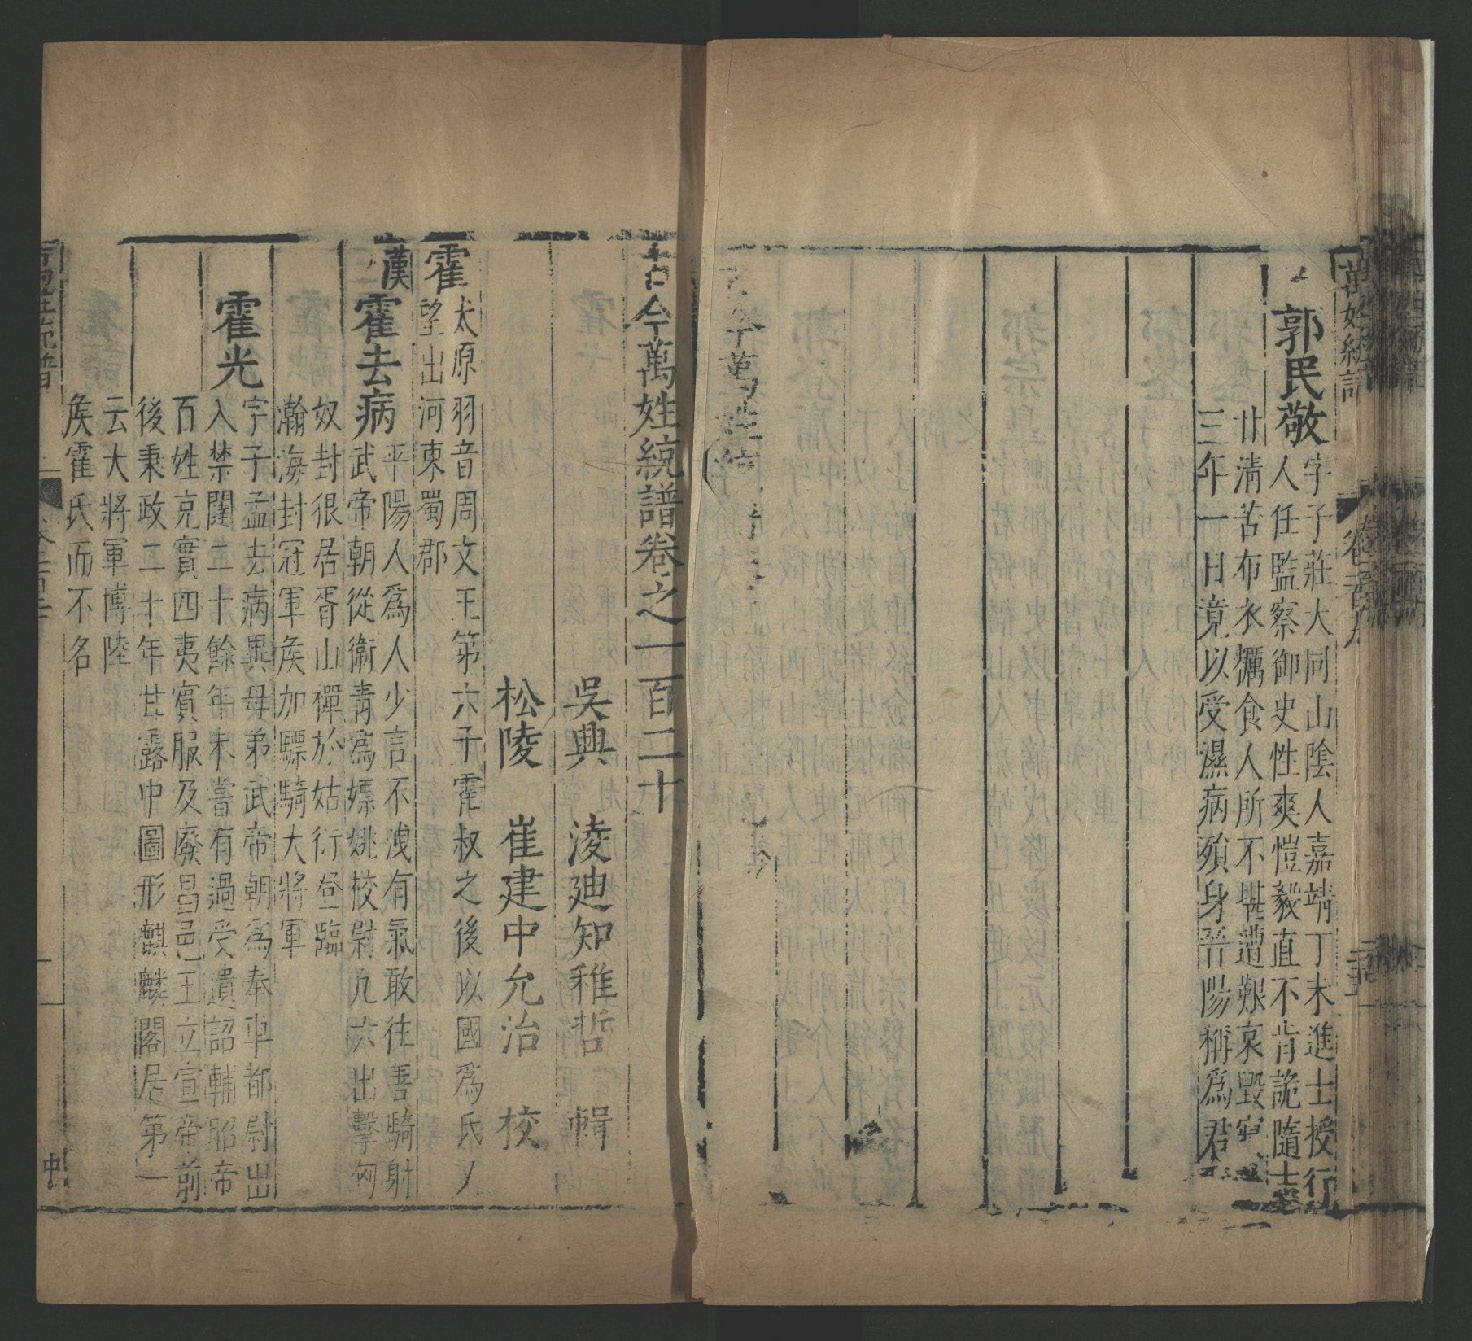 萬姓統譜
郭民敬
字子莊大同山陰人嘉靖丁未進士授行
人任監察御史性爽愷毅直不肯詭隨士
廿清苦布衣糲食人所不堪遭艱哀毀
三年一日竟以受濕病殞身晉陽稱爲君
古今萬姓統
古今萬姓統譜卷之一百二十
吳興 淩廸知稚哲 輯
松陵 崔建中允治 校
霍
太原 羽音周文王第六子霍叔之後以國爲氏
望出河東蜀郡
漢
霍去病
平陽人爲人少言不洩有氣敢往善騎射
武帝朝從衛青爲嫖姚校尉凡六出擊匈
奴封很居胥山禪於姑衍登臨
瀚海封冠軍矦加驃騎大將軍
霍光
字子孟去病異母弟武帝朝爲奉車都尉出
入禁闥二十餘年未嘗有過受遺詔輔昭帝
百姓克實四夷賓服及廢昌邑王立宣帝前
後秉政二十年甘露中圖形麒麟閣居第一
云大將軍博陸
矦霍氏而不名